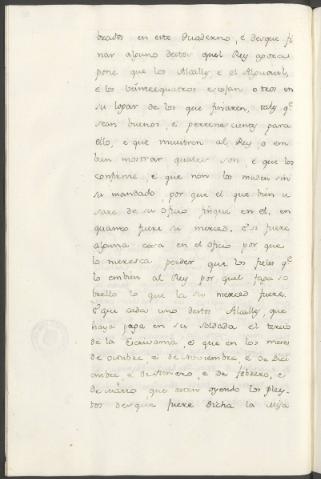 brados en este Quaderno, é desque fi
nar alguno destos quel Rey aqui
pone que los Alcalles é el Alguacil,
é los veinte equatros escojan otros en
su logar de los que finaren, tales q.e
sean buenos, é pertenecientes para
ello, é que muestren al Rey o em
bien mostrar quales son é que los
confirme, é que non los muden sin
su mandado, por que el que bien u
sare de su oficio finque en el, en
quanto fuere su merced, é si fuere
alguna cosa en el oficio por que
lo meresca perder que los fieles q.e
lo embien al Rey por quel faga so
brello lo que la su merced fuere.
E que cada uno destos Alcalles, que
haya paga en su soldada el tercio
de la Escrivania, é que en los meses
de octubre, é de Noviembre, é de Dici
embre é de Henero, é de febrero, é
de marzo, que esten oyendo los pley-
tos desque fuere dicha la Misa